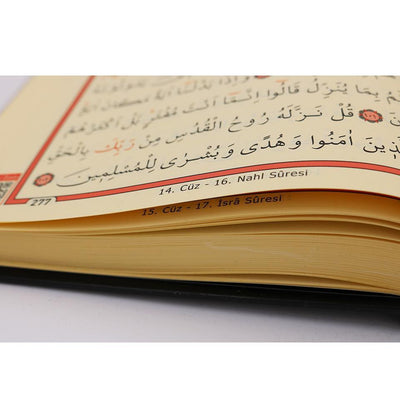 وَاِذَا بَدَّلْنَٓا اٰيَةً مَكَانَ
بِمَا يُنَزِّلُ قَالُٓوا اِنَّمَٓا اَنْتَ مُفْتَرٍ بَلْ اَكْثَرُهُمْ
١٠١ قُلْ نَزَّلَهُ رُوحُ الْقُدُسِ مِنْ رَبِّكَ بِالْحَقِّ
ـذِينَ اٰمَنُوا وَهُدًى وَبُشْرٰى لِلْمُسْلِمِينَ ١٠٢
277
14. Cüz - 16. Nahl Sûresi
15. Cüz - 17. İsrâ Sûresi